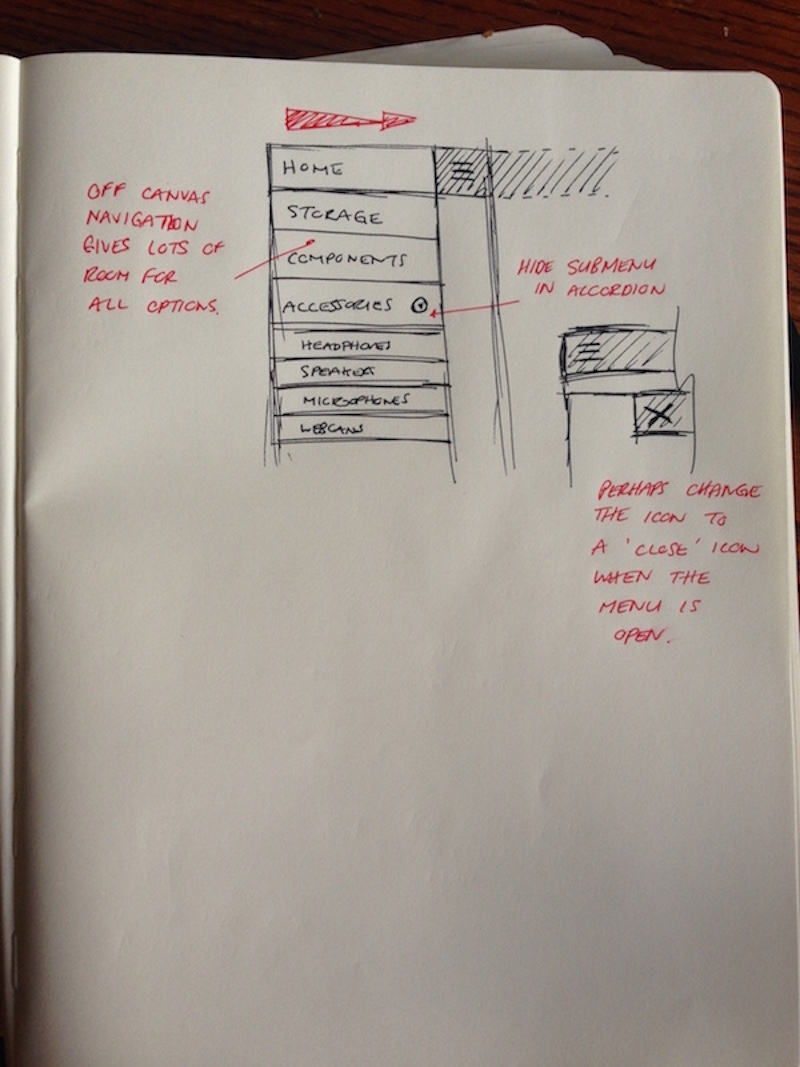 OFF CANVAS
NAVIGATION
GIVES LOTS OF
ROOM FOR
ALL OPTIONS.
HOME
STORAGE
COMPONENTS
ACCESSORIES
HEADPHONES
SPEAKERS
MICROPHONES
WEBCAMS
HIDE SUBMENU
IN ACCORDION
PERHAPS CHANGE
THE ICON TO
A 'CLOSE' ICON
WHEN THE
MENU IS
OPEN.